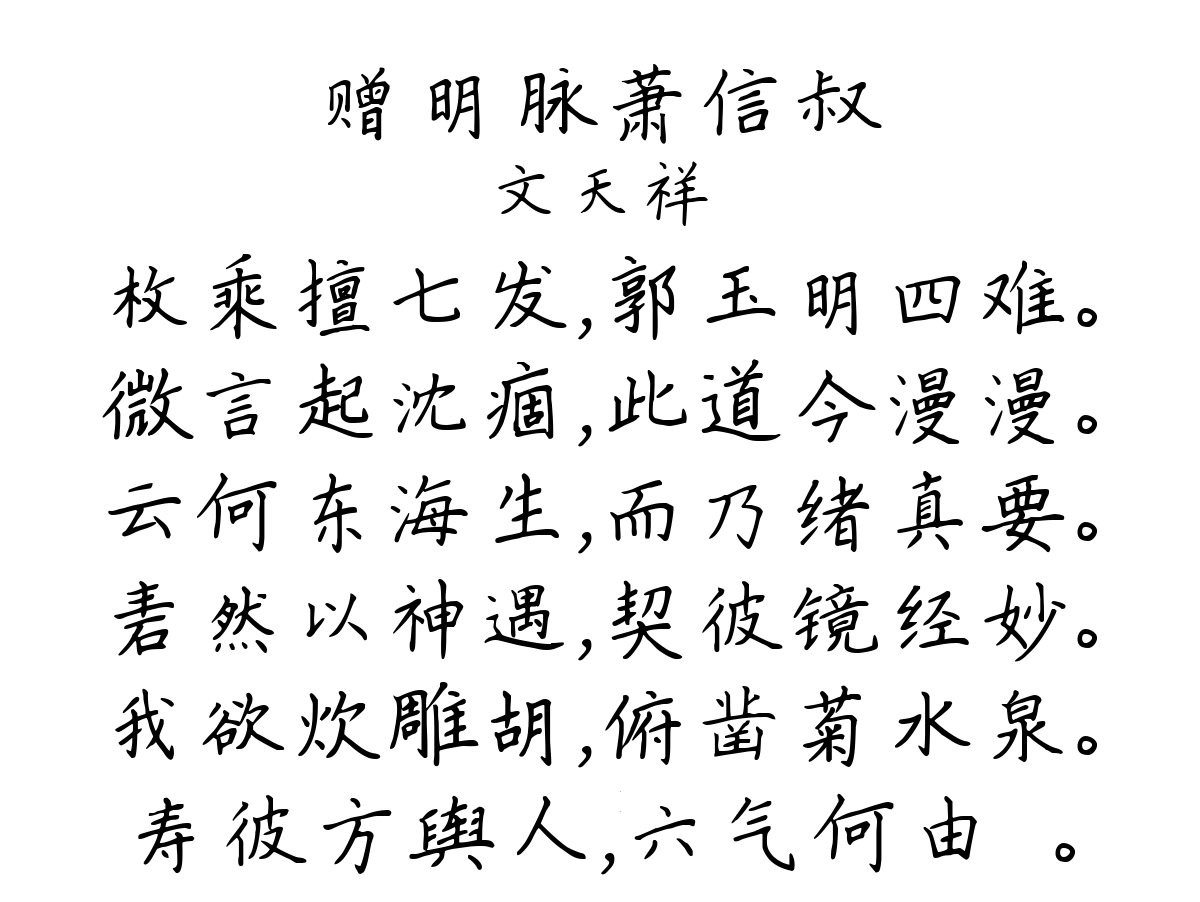 赠明脉萧信叔
文天祥
枚乘擅七发,郭玉明四难。
微言起沈痼,此道今漫漫。
云何东海生,而乃绪真要。
砉然以神遇,契彼镜经妙。
我欲炊雕胡,俯凿菊水泉。
寿彼方舆人,六气何由 。